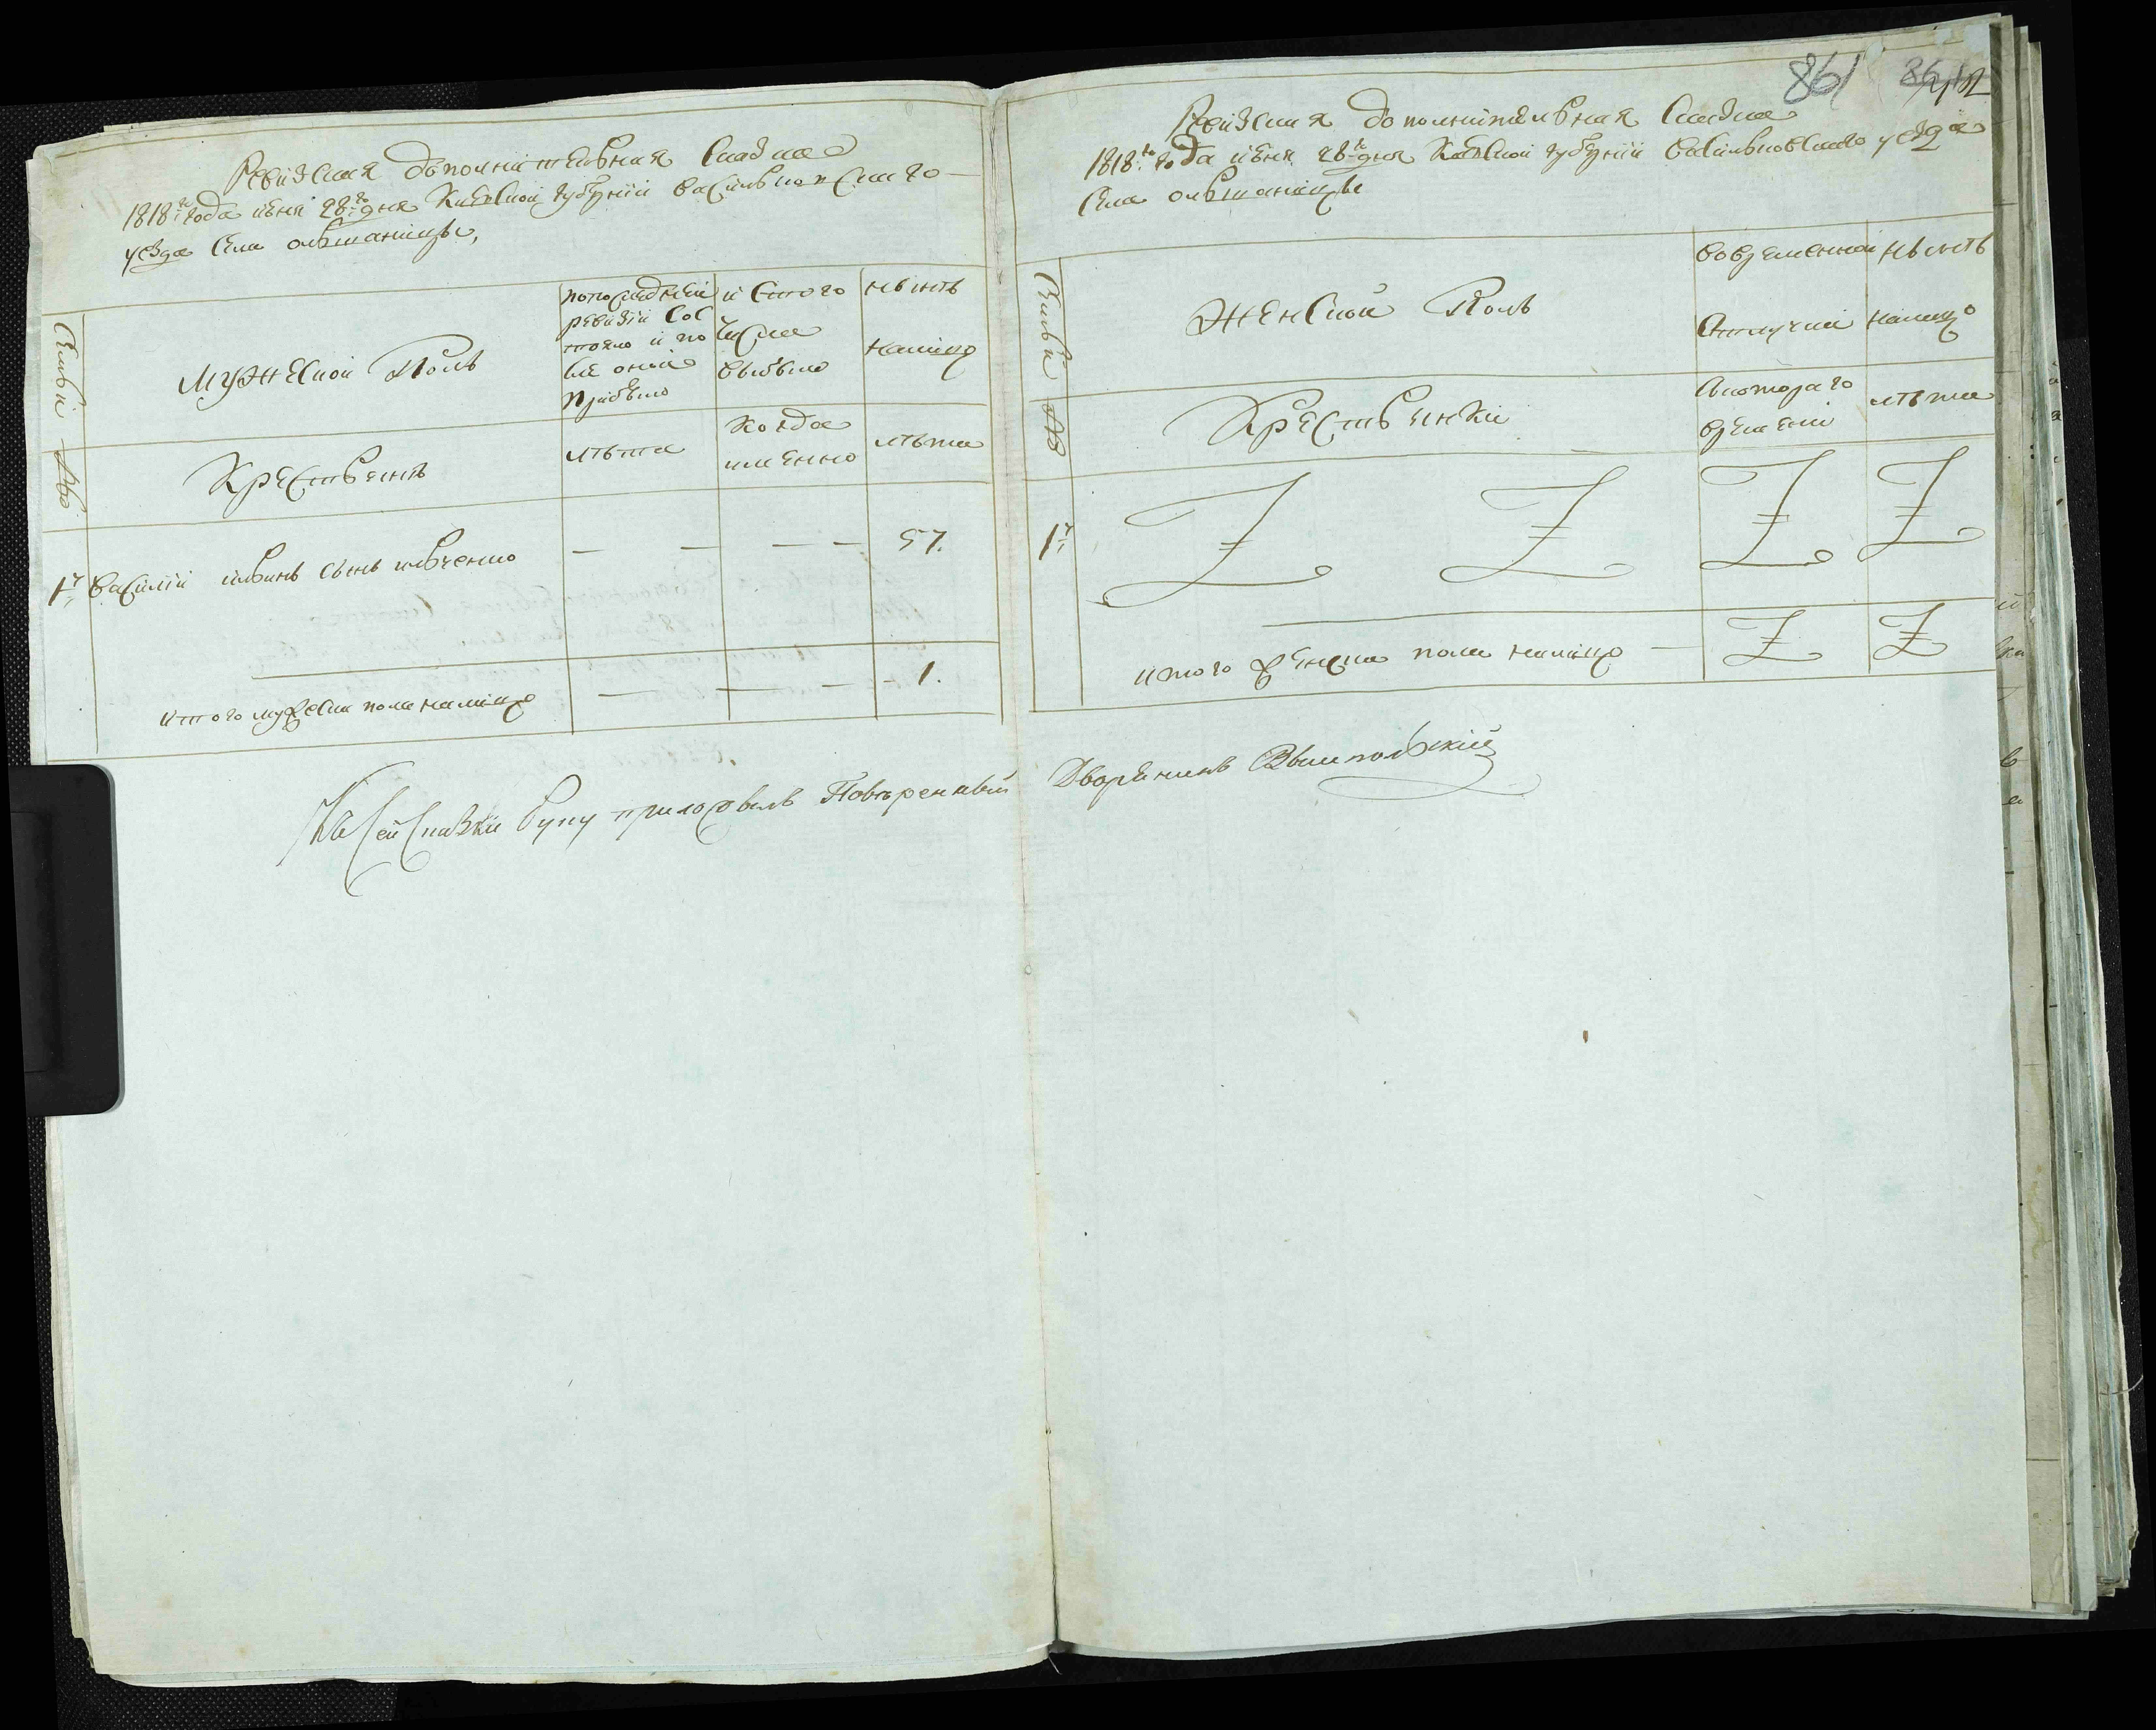 Ревизская дополнительная Сказка
1818:го года июня 28:го дня Киевской губернии васильковского
уезда Села ольшаницы,
Семьи
№
Мужеской Полъ
по последней
ревизии сос
тояло и по
сле оной
прибыло
и Стого
числа
выбыло
нынъ
налицо
Крестьянъ
лѣта
когда
именно
лѣта
1й василий ильинъ сынъ ильченко — — — — 57.
итого мужеска пола налицо — — — — 1.
861
Ревизская дополнительная Сказка
1818:го года июня 28:го дня Киевской губернии васильковского уезда
Села ольшаницы
Семьи
№
Женской Полъ
вовременной
Отлучки
нынѣ
налицо
Крестьянки
Скоторого
времени
лѣта
1й
итого женска пола налицо —
Ксей Сказки Руку приложилъ Повѣренный Дворянинъ